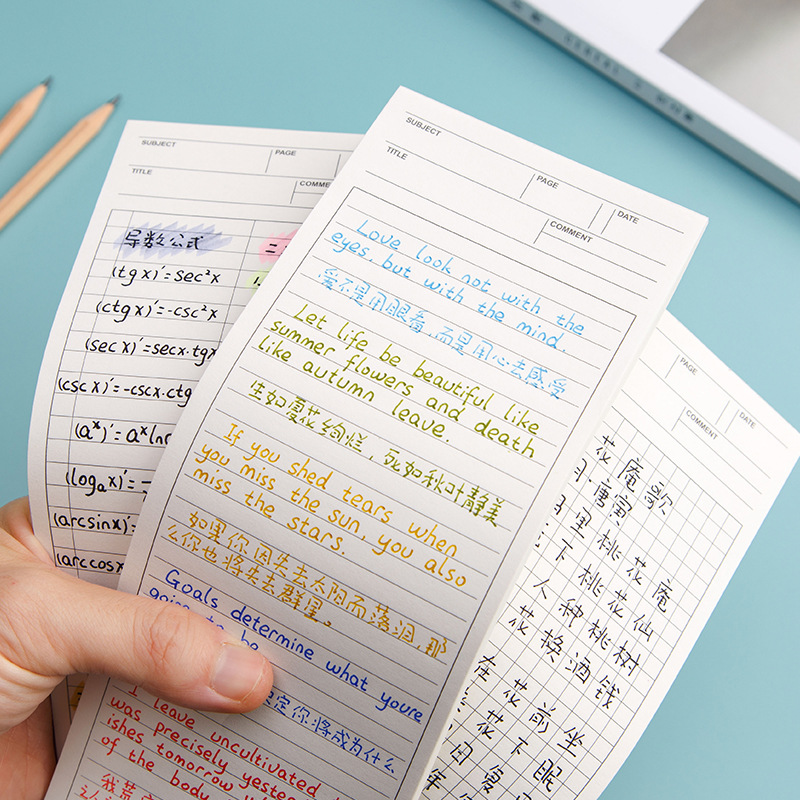 SUBJECT
PAGE
TITLE
COMME
导数公式
二
(tg x)′=sec²x
(ctg x)′=-csc²x
(sec x)′=secx·tgx
(csc x)′=-cscx·ctg
(aˣ)′=aˣln
(logₐx)′=
(arcsinx)′=
(arccosx
SUBJECT
PAGE
DATE
TITLE
COMMENT
Love look not with the
eyes, but with the mind.
爱不是用眼看,而是用心去感受
Let life be beautiful like
summer flowers and death
like autumn leave.
生如夏花绚烂,死如秋叶静美
If you shed tears when
you miss the sun, you also
miss the stars.
如果你因失去太阳而落泪,那
么你也将失去群星。
Goals determine what youre
going to be
定你将成为什么
I leave uncultivated
was precisely yester
ishes tomorrow
of the body
我荒
PAGE
DATE
COMMENT
花庵歌
唐寅
里桃花庵
下桃花仙
人种桃树
花换酒钱
在花前坐
花下眠
日复
年